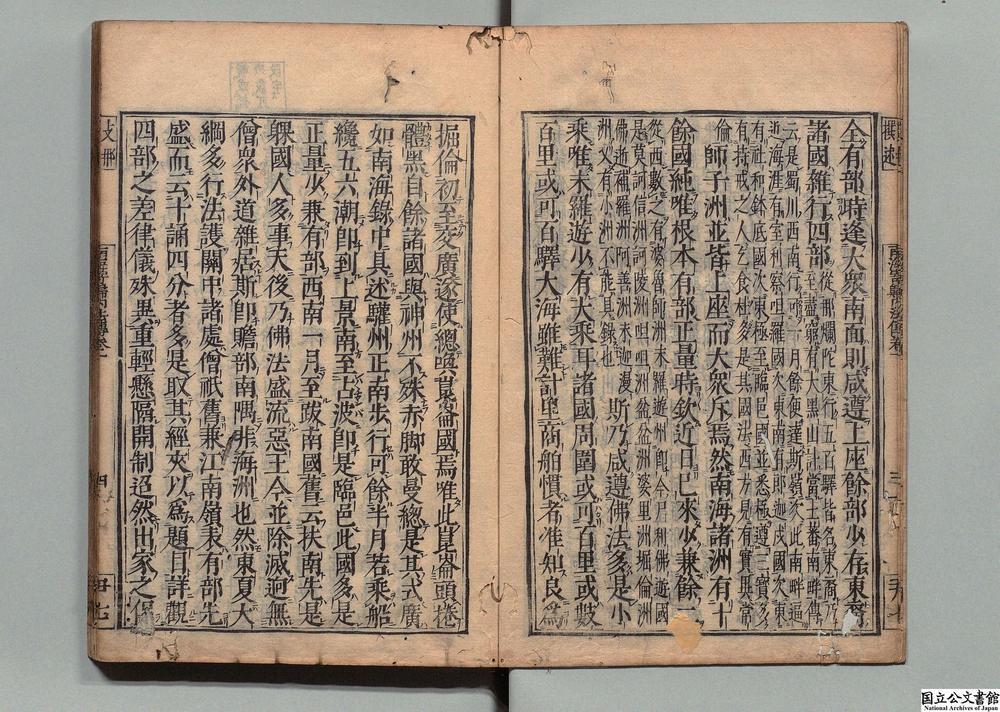 全有部時逢大衆南面則咸遵上座餘部少存東裔
諸國雜行四部
從那爛陀東行五百驛皆名東裔乃
至盡窮有大黑山計當土蕃南畔傳
云是蜀川西南行可一月餘便達斯嶺次此南畔逼
近海涯有室利察呾羅國次東南有郎迦戍國次東
有社和鉢底國次東極至臨邑國並悉極遵三寶多
有持戒之人乞食杜多是其國法西方見有實異常
倫
師子洲並皆上座而大衆斥焉然南海諸洲有十
餘國純唯根本有部正量時欽近日已來少兼餘二
從西數之有婆魯師洲末羅遊州即今尸利佛逝國
是莫訶信洲訶陵洲呾呾洲盆盆洲婆里洲掘倫洲
佛逝補羅洲阿善洲末迦漫
洲又有小洲不能具錄也
斯乃咸遵佛法多是小
乘唯末羅遊少有大乘耳諸國周圍或可百里或數
百里或可百驛大海雖難計里商舶慣者准知良爲
掘倫初至交廣遂使總喚崑崙國焉唯此崑崙頭捲
體黑自餘諸國與神州不殊赤脚敢曼總是其式廣
如南海錄中具述驩州正南步行可餘半月若乘船
纔五六潮即到上景南至占波即是臨邑此國多是
正量少兼有部西南一月至跋南國舊云扶南先是
躶國人多事天後乃佛法盛流惡王今並除滅迥無
僧衆外道雜居斯即贍部南隅非海洲也然東夏大
綱多行法護關中諸處僧祇舊兼江南嶺表有部先
盛而云十誦四分者多是取其經夾以爲題目詳觀
四部之差律儀殊異重輕懸隔開制迢然出家之侶
四
国立公文書館
National Archives of Japan